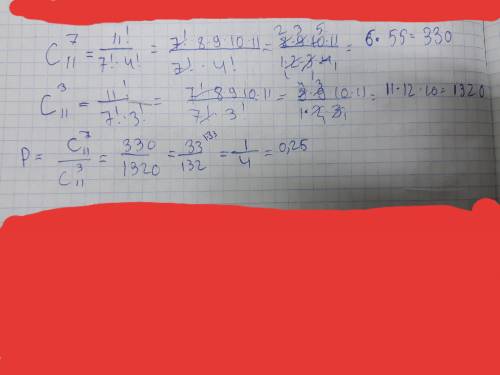 C₁₁⁷ = 11!/(7!·4!) = (7!·8·9·10·11)/(7!·4!) = (8·9·10·11)/(1·2·3·4) = 6·55 = 330
C₁₁³ = 11!/(7!·3!) = (7!·8·9·10·11)/(7!·3!) = (8·9·10·11)/(1·2·3) = 11·12·10 = 1320
P = C₁₁⁷/C₁₁³ = 330/1320 = 33/132 = 1/4 = 0,25